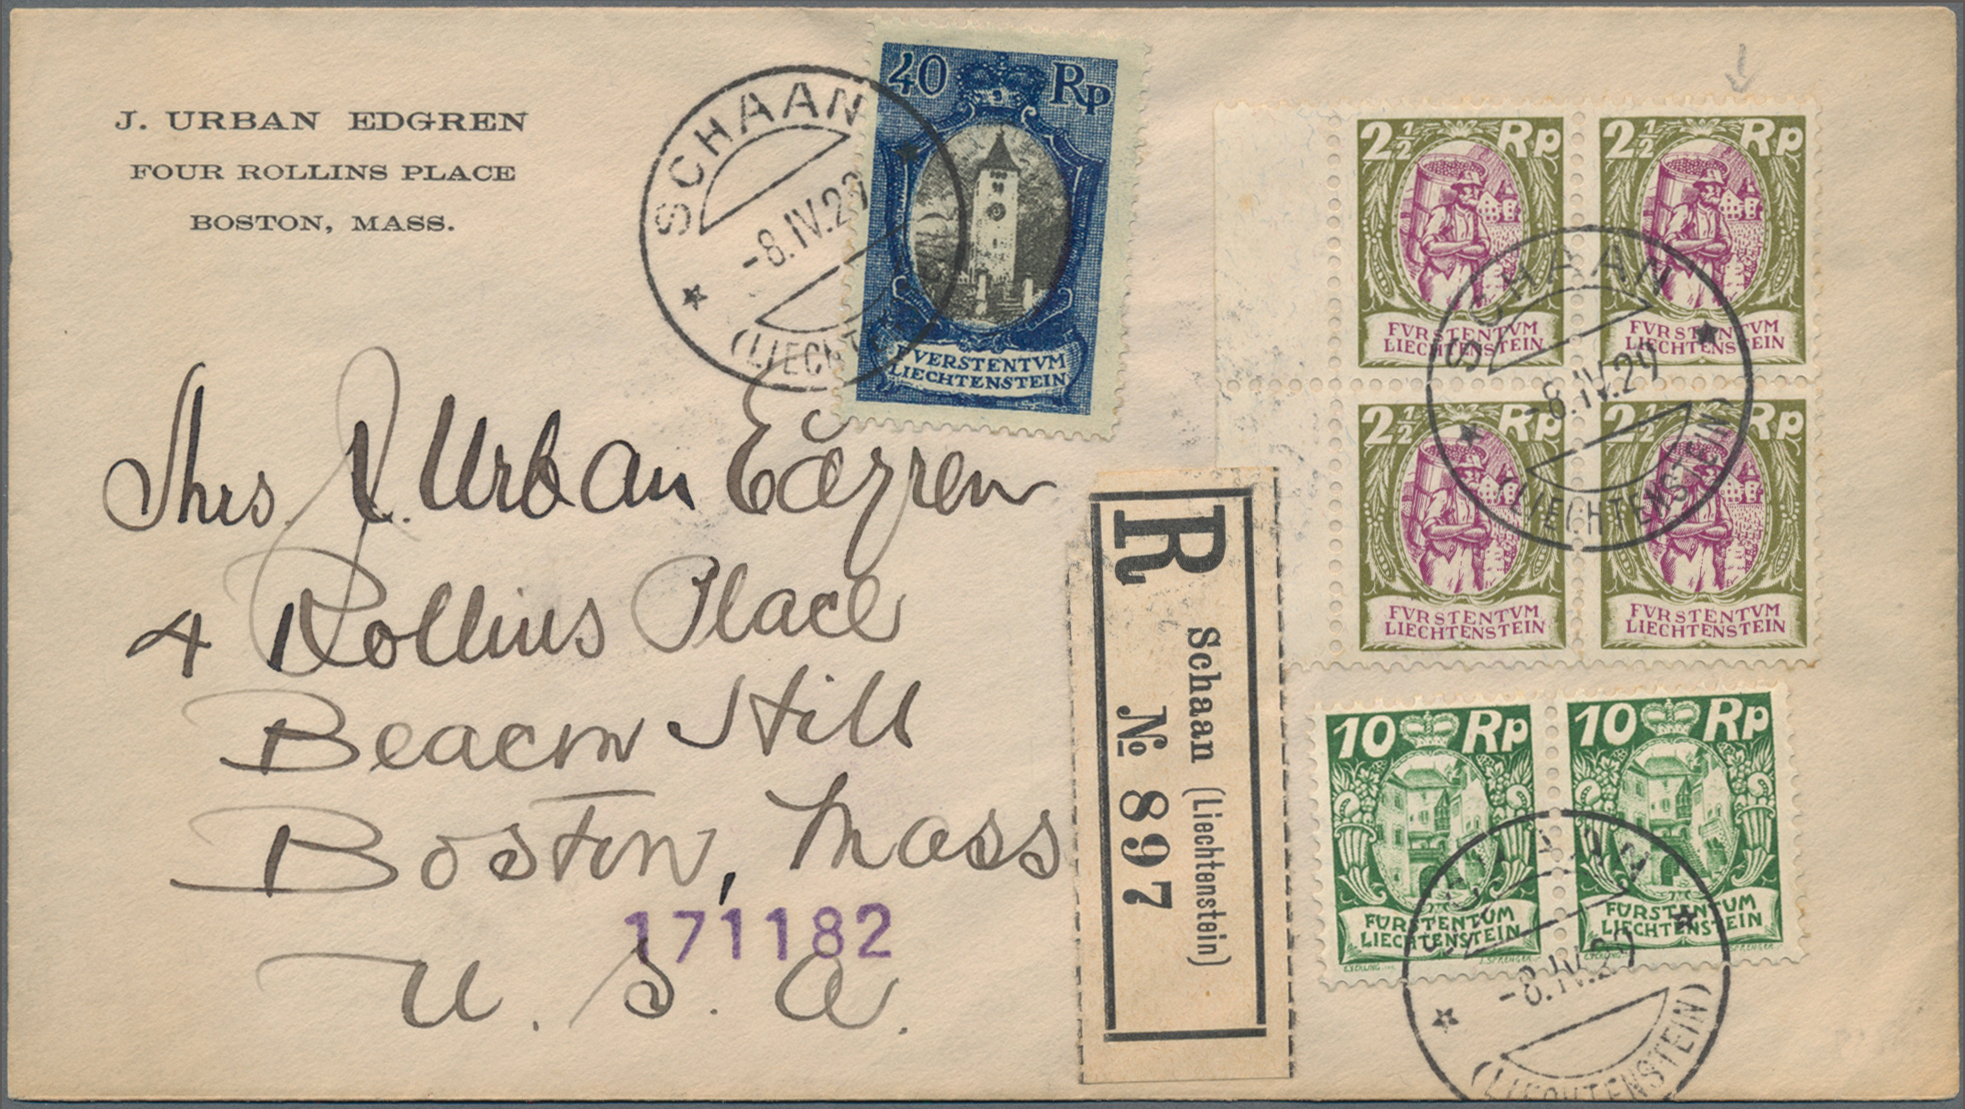 J. URBAN EDGREN
FOUR ROLLINS PLACE
BOSTON, MASS.
SCHAAN
-8.IV.29
(LIECHTE
40 Rp
FVERSTENTVM
LIECHTENSTEIN
2½ Rp
FVRSTENTVM
LIECHTENSTEIN
2½ Rp
FVRSTENTVM
LIECHTENSTEIN
2½ Rp
FVRSTENTVM
LIECHTENSTEIN
2½ Rp
FVRSTENTVM
LIECHTENSTEIN
SCHAAN
-8.IV.29
(LIECHTENSTEIN)
Mrs. J. Urban Edgren
4 Rollins Place
Beacon Hill
Boston, Mass
171182
U. S. A.
R
Schaan (Liechtenstein)
№ 897
10 Rp
FÜRSTENTUM
LIECHTENSTEIN
10 Rp
FÜRSTENTUM
LIECHTENSTEIN
SCHAAN
-8.IV.29
(LIECHTENSTEIN)